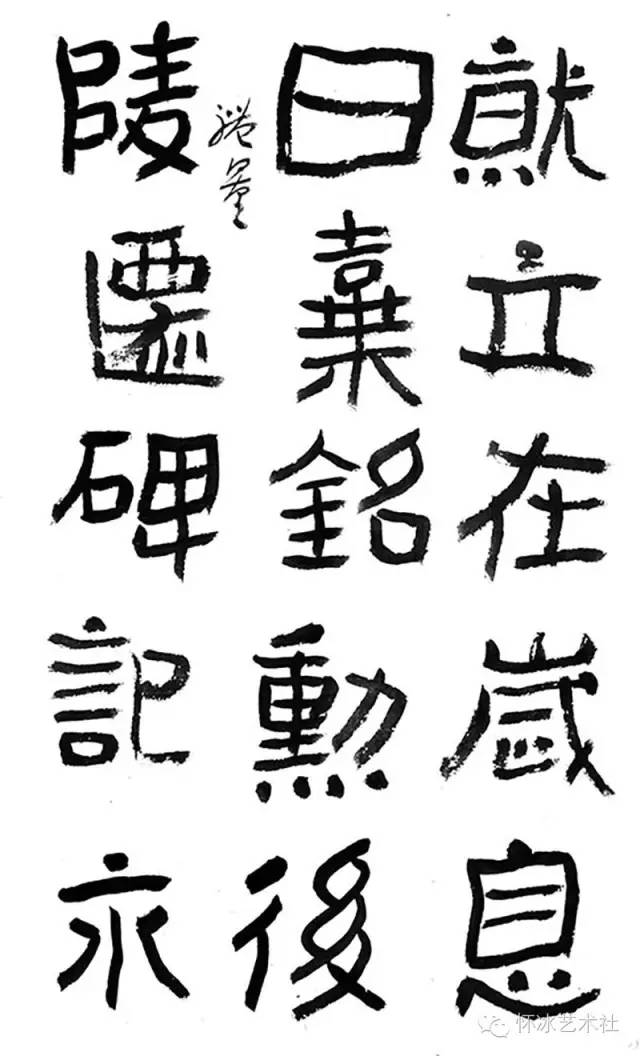 就立在歲息
日棄銘勳後
陵遷碑記永
怀冰艺术社